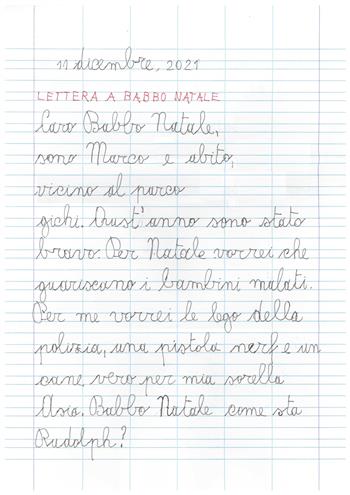 11 dicembre, 2021
LETTERA A BABBO NATALE
Caro Babbo Natale,
sono Marco e abito,
vicino al parco
gichi. Qust'anno sono stato
bravo. Per Natale vorrei che
guariscano i bambini malati.
Per me vorrei le lego della
polizia, una pistola nerf e un
cane vero per mia sorella
Asia. Babbo Natale come sta
Rudolph?